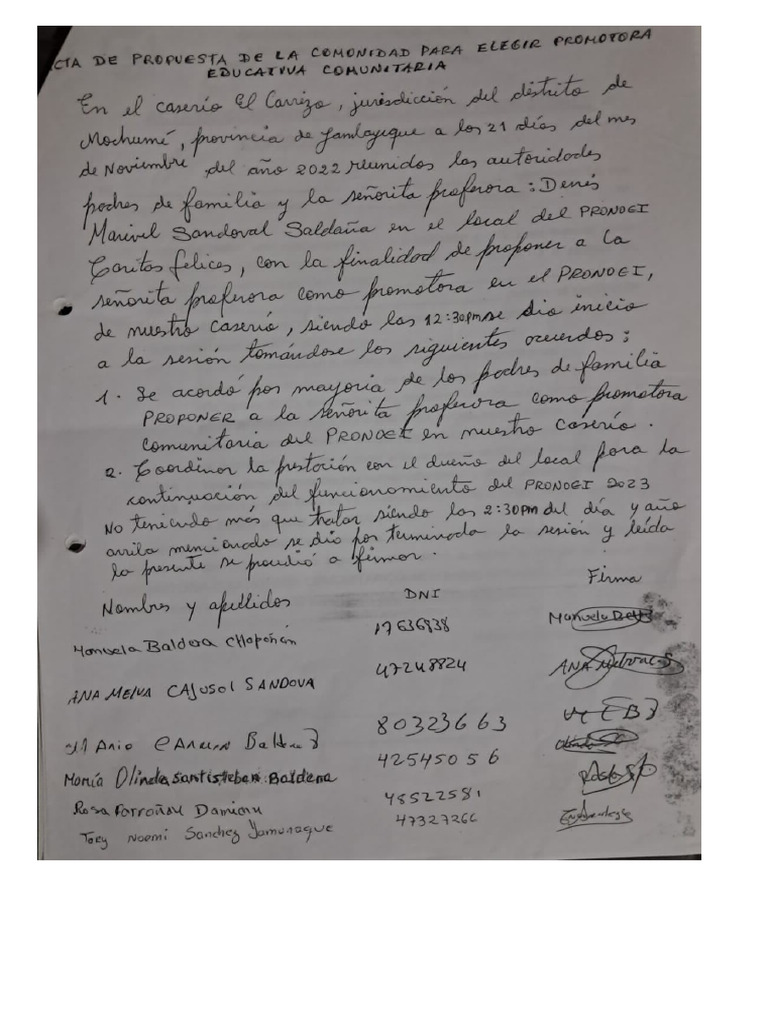 ACTA DE PROPUESTA DE LA COMONIDAD PARA ELEGIR PROMOTORA
EDUCATIVA COMUNITARIA
En el caserío El Carrizo, jurisdicción del distrito de
Mochumí, provincia de Lambayeque a los 21 días del mes
de Noviembre del año 2022 reunidos las autoridades
padres de familia y la señorita profesora: Denis
Marivel Sandoval Saldaña en el local del PRONOEI
Caritas felices, con la finalidad de proponer a la
señorita profesora como promotora en el PRONOEI,
de nuestro caserío, siendo las 12:30pm se dio inicio
a la sesión tomándose los siguientes acuerdos:
1. Se acordó por mayoria de los padres de familia
PROPONER a la señorita profesora como promotora
comunitaria del PRONOEI en nuestro caserío.
2. Coordinar la prestación con el dueño del local para la
continuación del funcionamiento del PRONOEI 2023
No teniendo más que tratar siendo las 2:30pm del día y año
arriba mencionado se dio por terminada la sesión y leída
la presente se procedió a firmar.
Nombres y apellidos DNI Firma
Manuela Baldera Chapoñán 17636838 Manuela
ANA MELVA CAJUSOL SANDOVA 47248824 ANA
Baldera 80323663
María Olinda Santisteban Baldera 42545056
Rosa Farroñan Damian 48522581 Rosa
Tory Noemi Sanchez Yamunaque 47327266